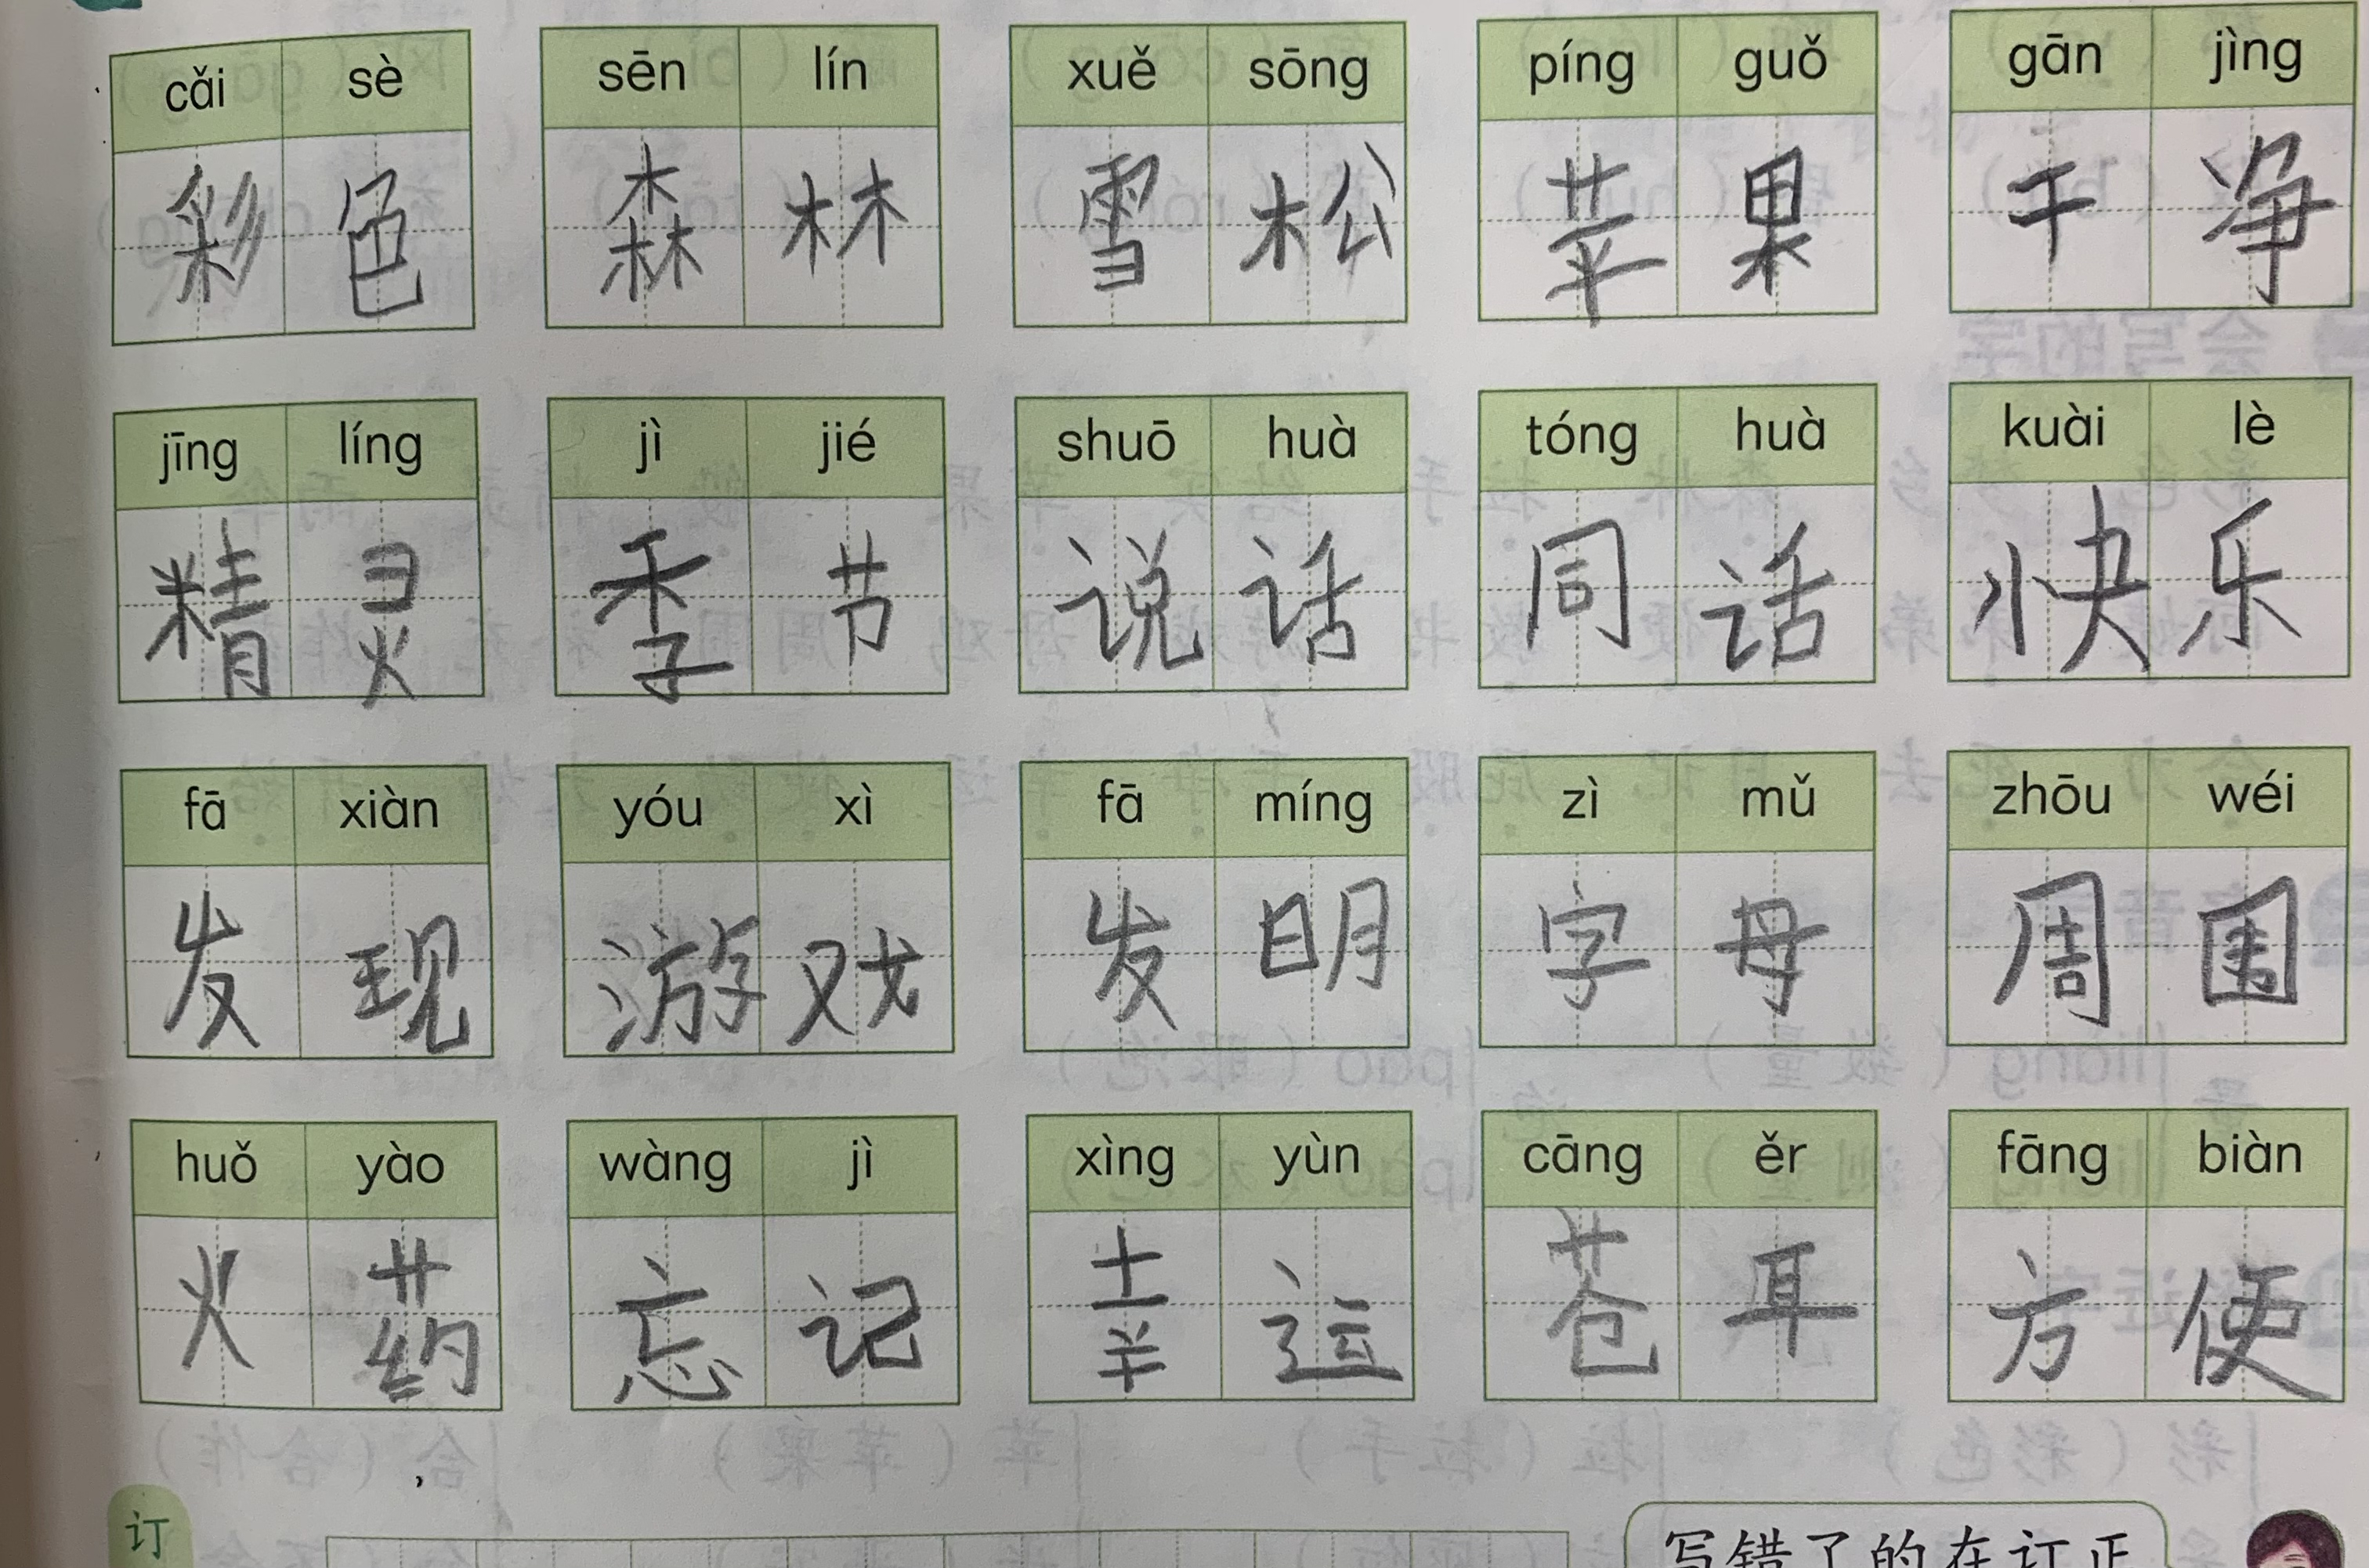 cǎi sè sēn lín xuě sōng píng guǒ gān jìng
彩色 森林 雪松 苹果 干净
jīng líng jì jié shuō huà tóng huà kuài lè
精灵 季节 说话 同话 快乐
fā xiàn yóu xì fā míng zì mǔ zhōu wéi
发现 游戏 发明 字母 周围
huǒ yào wàng jì xìng yùn cāng ěr fāng biàn
火药 忘记 幸运 苍耳 方便
订
写错了的在订正